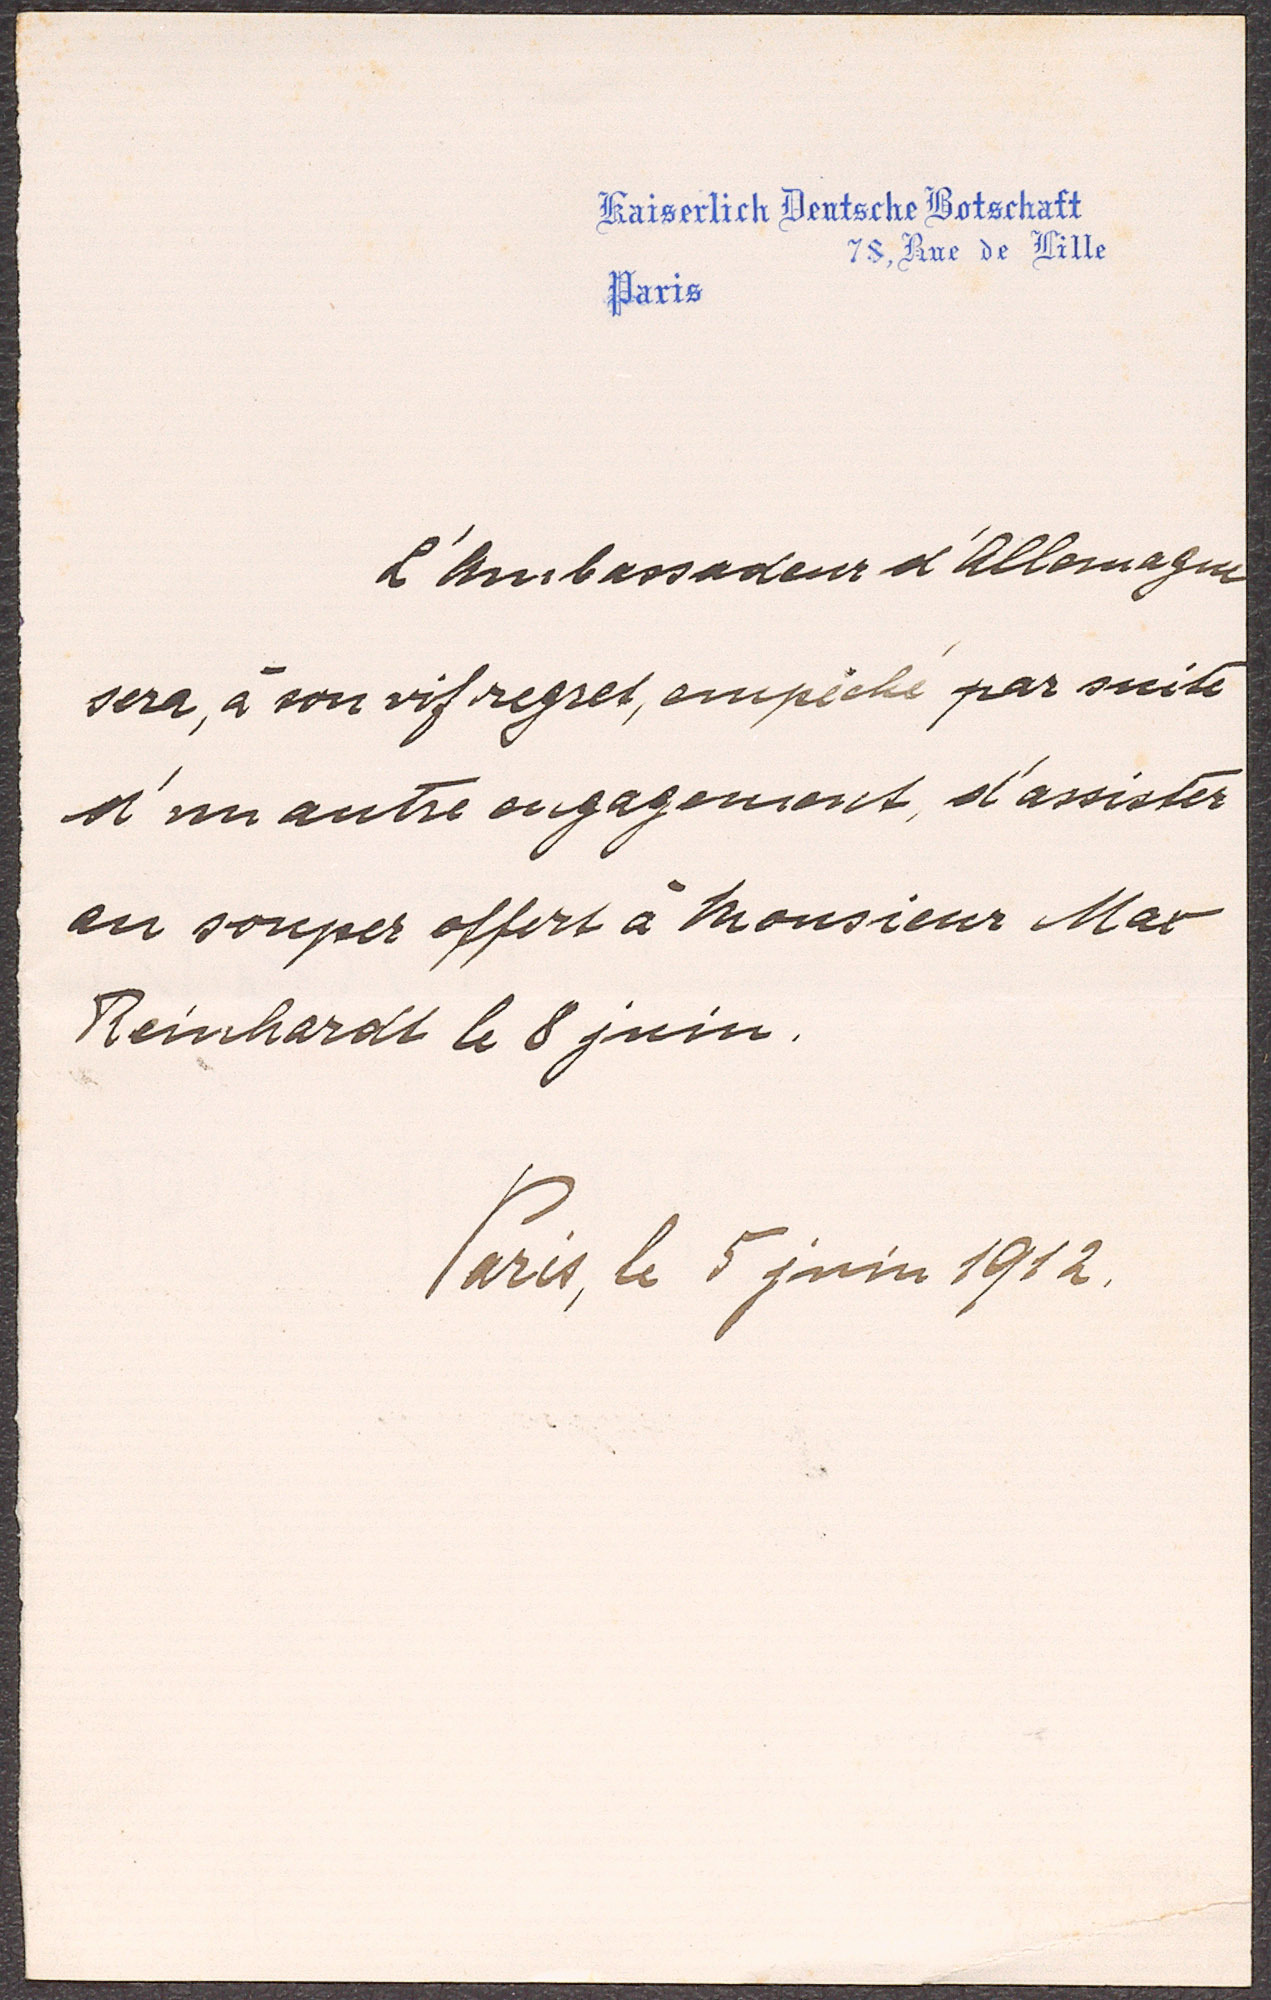 Kaiserlich Deutsche Botschaft
78, Rue de Lille
Paris
L'Ambassadeur d'Allemagne
sera, à son vif regret, empêché par suite
d'un autre engagement, d'assister
au souper offert à Monsieur Max
Reinhardt le 8 juin.
Paris, le 5 juin 1912.